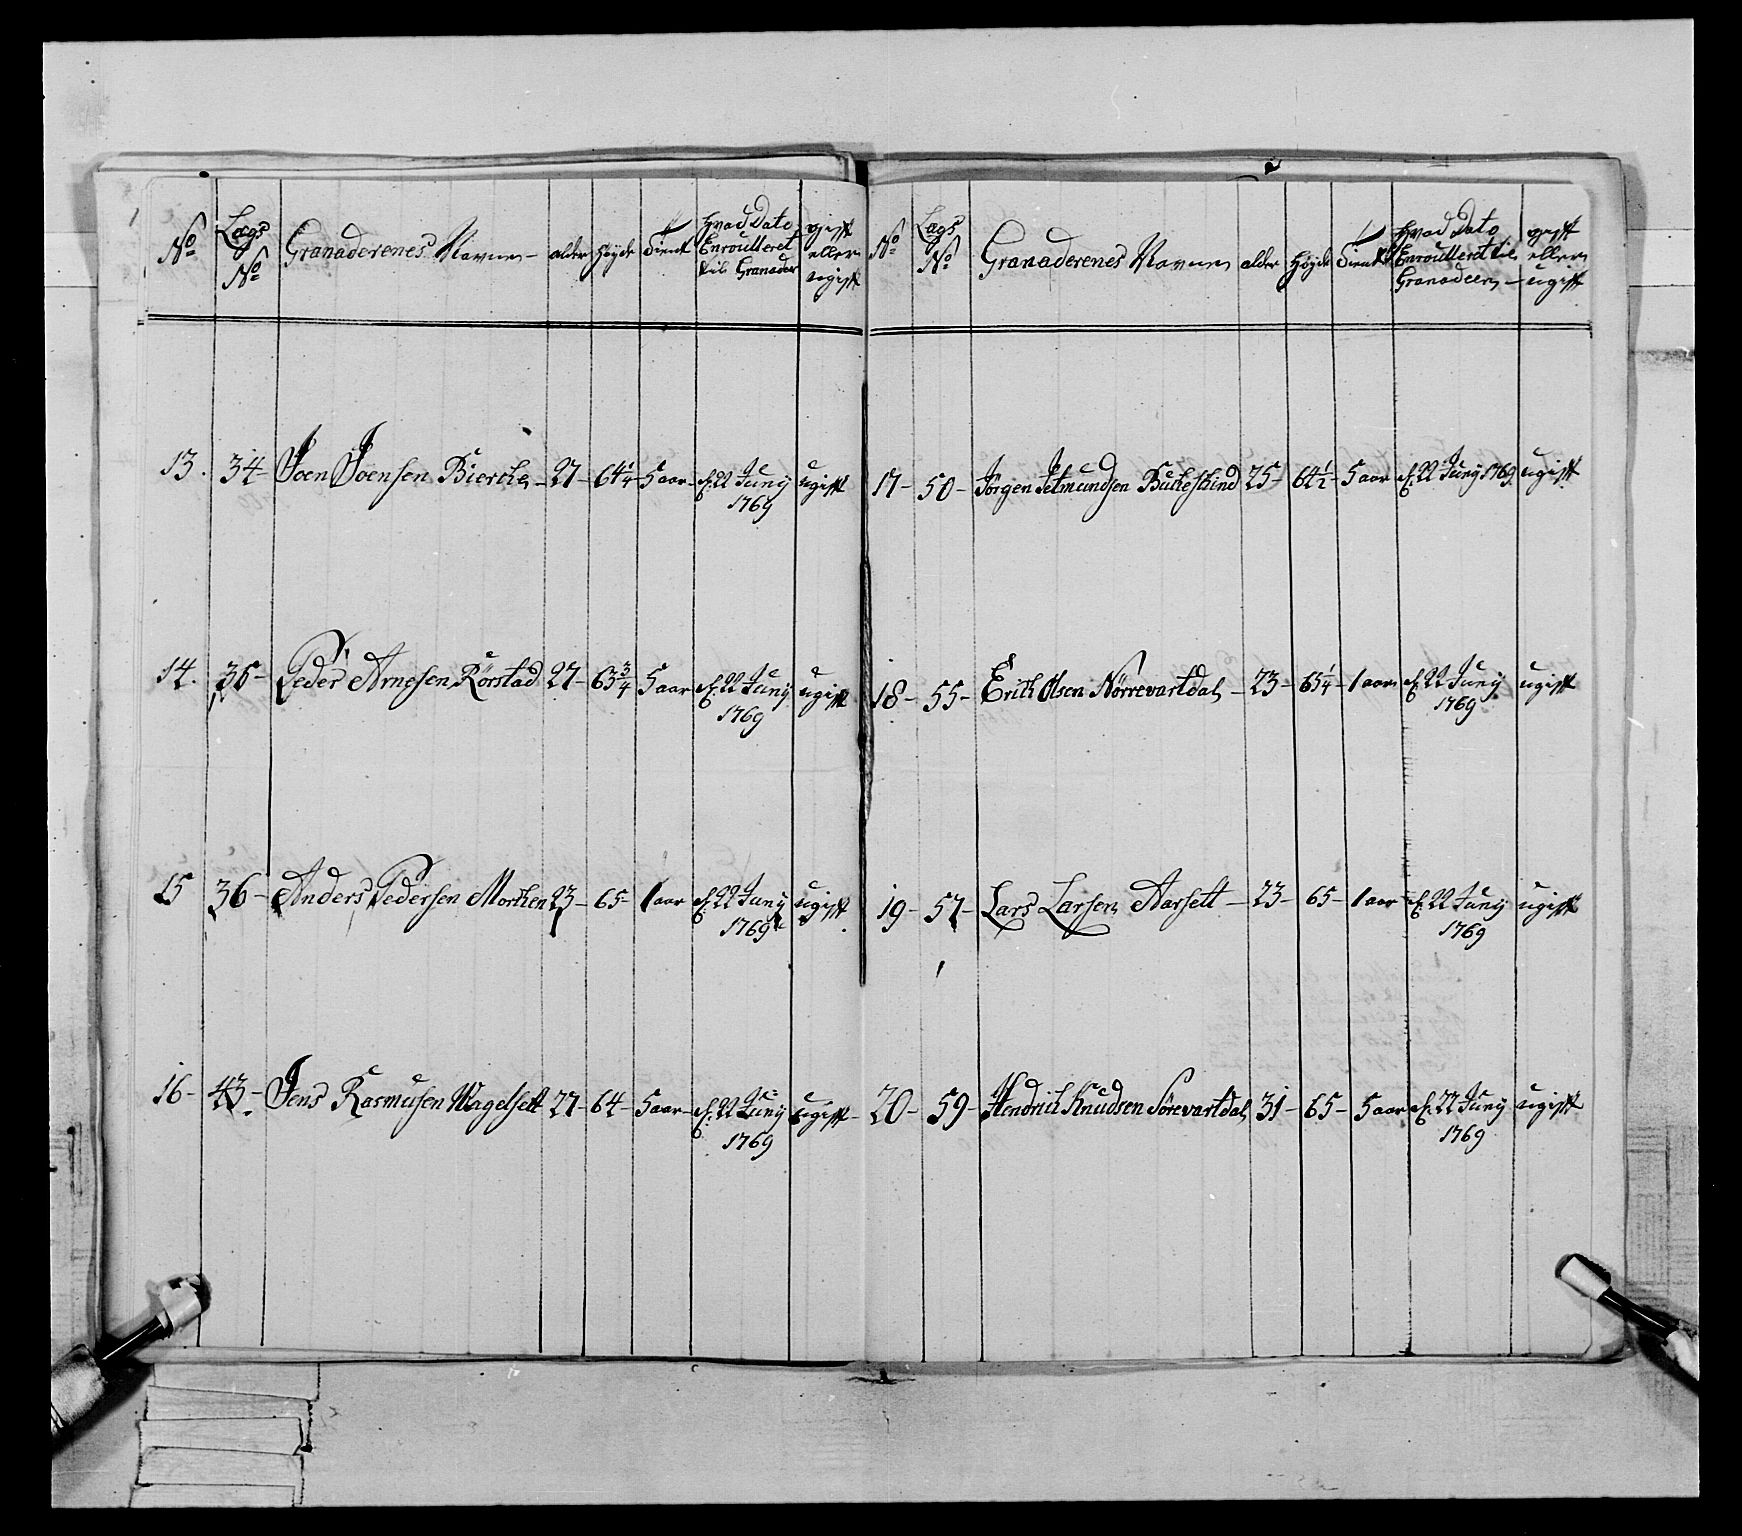 No Lægs No Granaderenes Navne alder Høyde Tient Hvad Dato Enroulleret til Granader gift eller ugift
13. 34 Joen Joensen Biercke 27 64 1/4 5 aar d. 22 Juny 1769 ugift
14. 35 Peder Arnesen Rörstad 27 63 3/4 5 aar d. 22 Juny 1769 ugift
15 36 Anders Pedersen Morken 23 65 1 aar d. 22 Juny 1769 ugift
16 43 Jens Rasmusen Wagelsett 27 64 5 aar d. 22 Juny 1769 ugift
No Lægs No Granaderenes Navne alder Høyde Tient Hvad Dato Enroulleret til Granadeer gift eller ugift
17 50 Jörgen Jetmundsen Bukeskind 25 64 1/2 5 aar d. 22 Juny 1769 ugift
18 55 Erich Olsen Nörrevartdal 23 65 1/4 1 aar d. 22 Juny 1769 ugift
19 57 Lars Larsen Aarsett 23 65 1 aar d. 22 Juny 1769 ugift
20 59 Hendrich Knudsen Sörevartdal 31 65 5 aar d. 22 Juny 1769 ugift